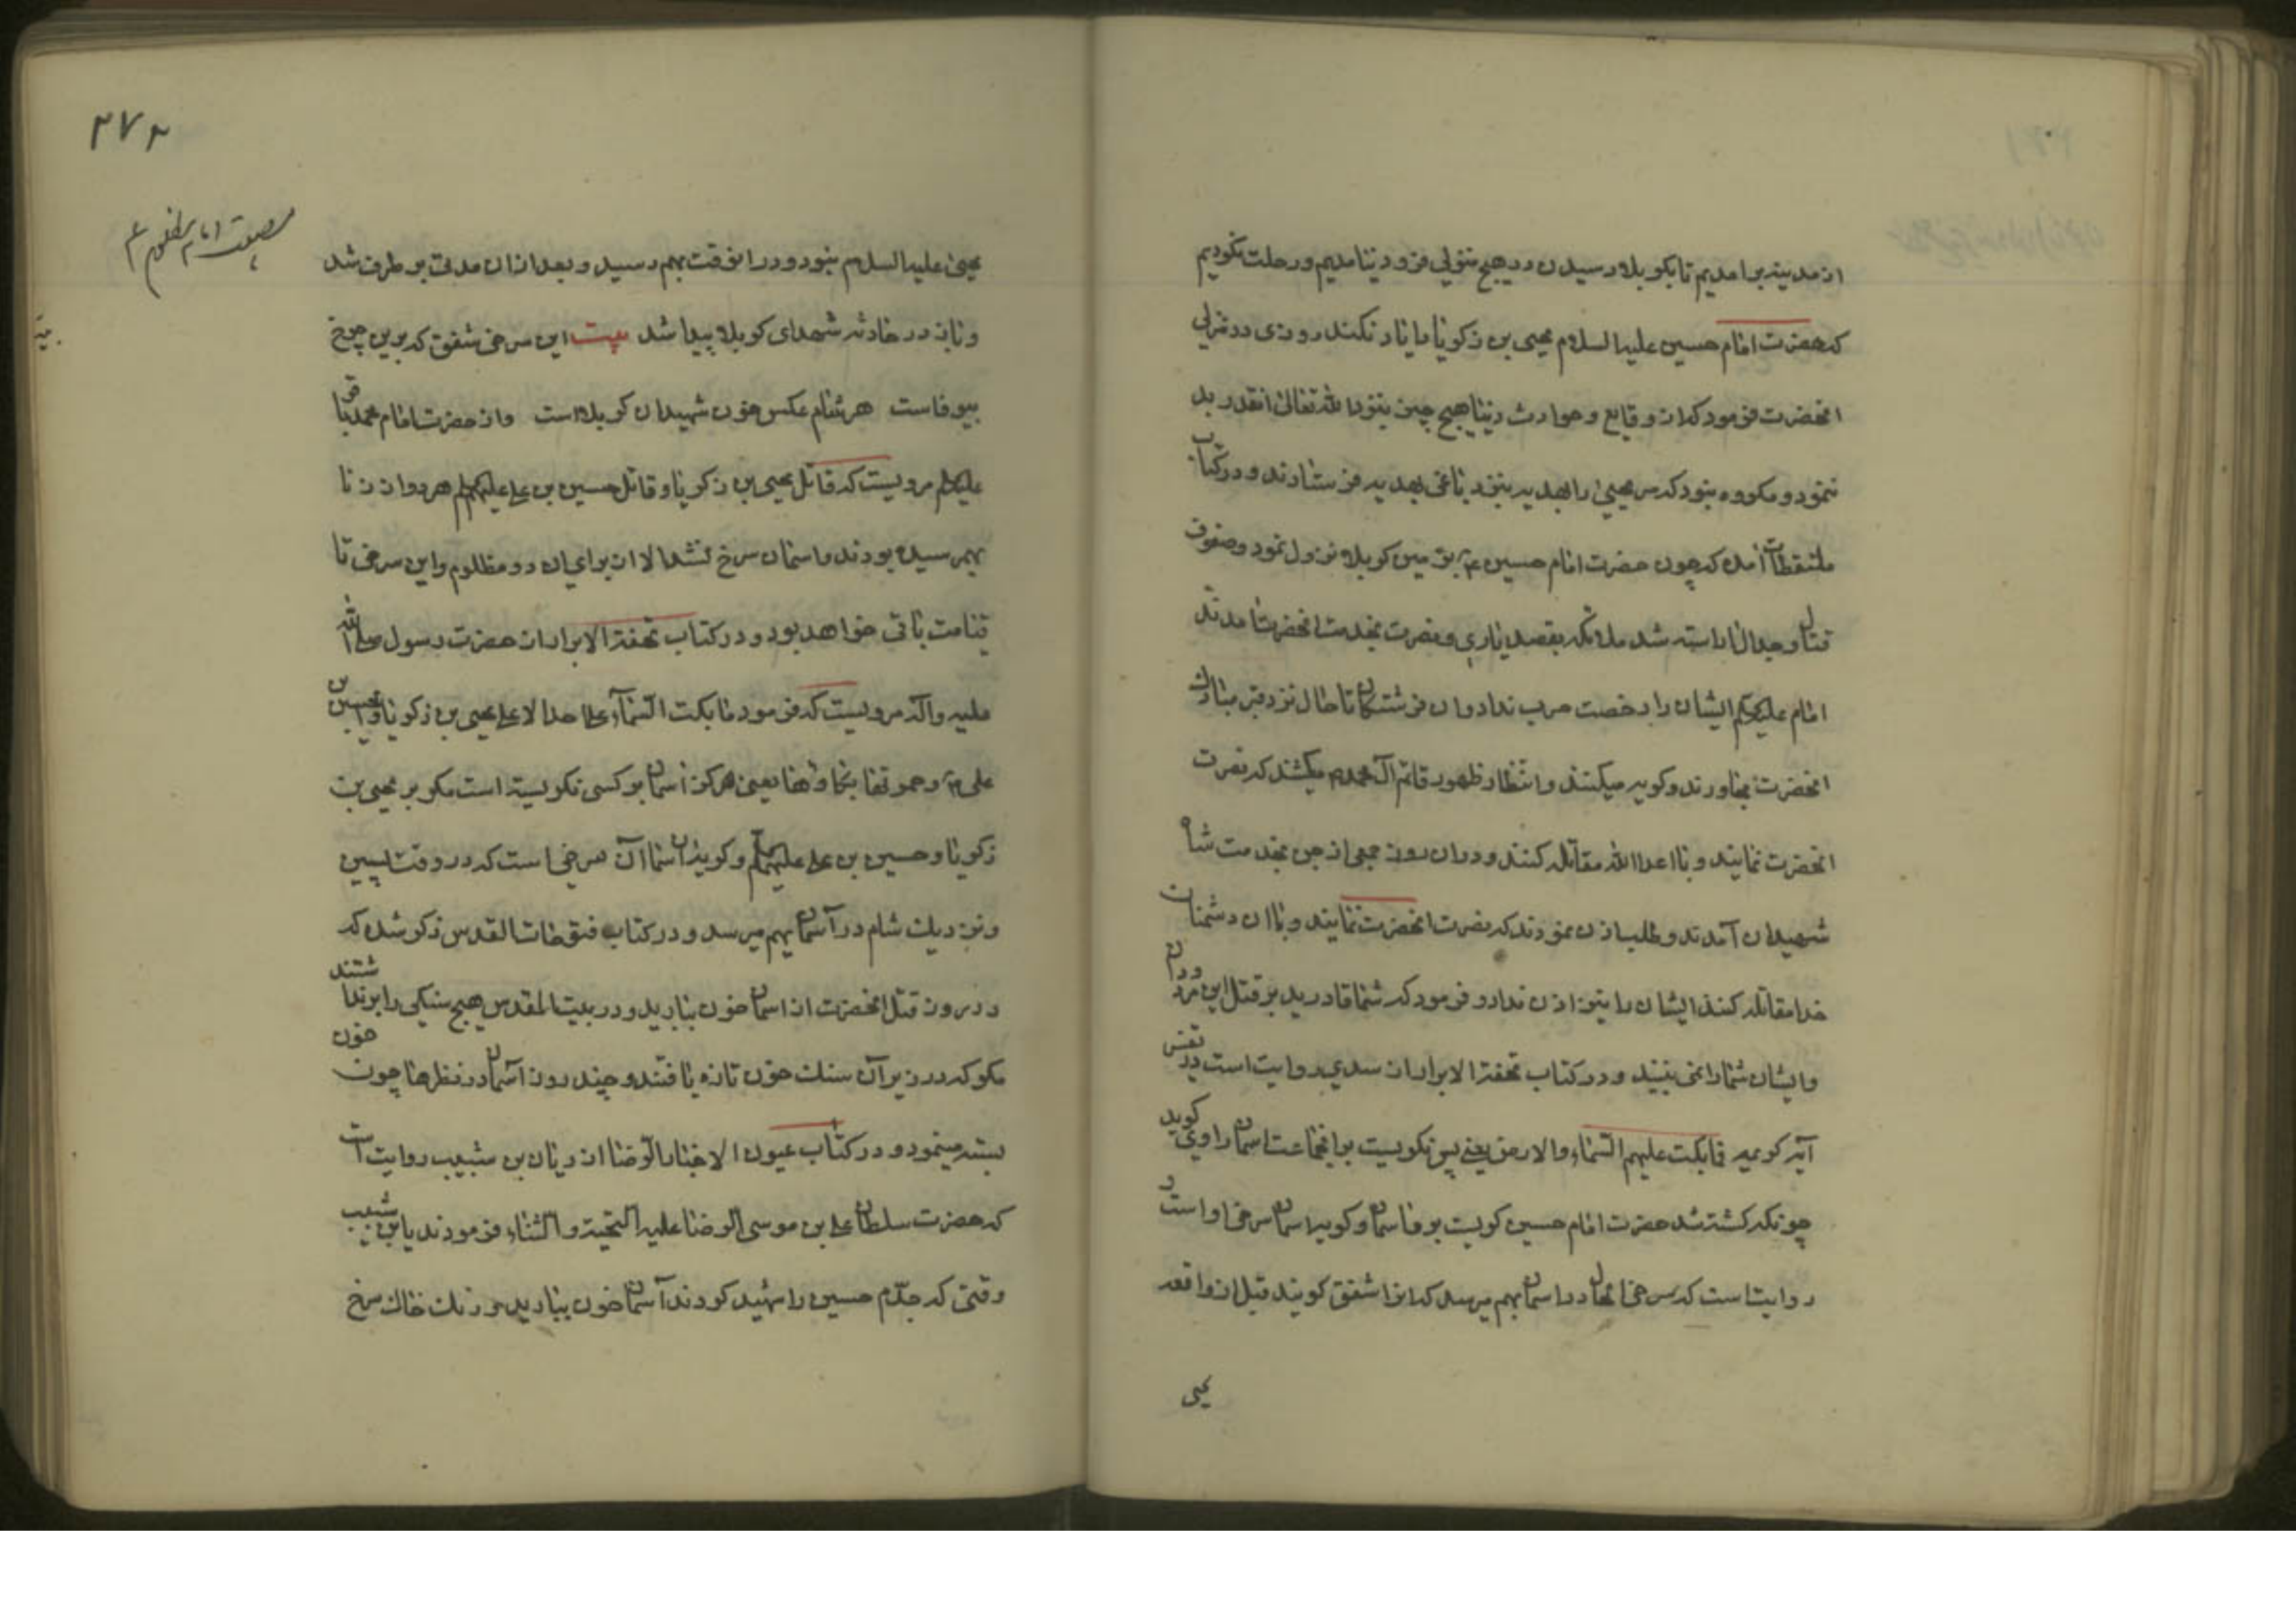 از مدینه برامدیم تا بکربلا رسیدن در هیچ منزلی فرود نیامدیم و رحلت نکردیم
که حضرت امام حسین علیه السلام یحیی بن زکریا را یاد نکند روزی در منزلی
انحضرت فرمود که از وقایع و حوادث دنیا هیچ چیز بنزد الله تعالی انقدر بد
ننمود و مکروه نبود که سر یحیی را بهدیه بنزد باغی بهدیه فرستادند و در کتاب
ملتقطات آمده که چون حضرت امام حسین ع بزمین کربلا نزول نمود و صفوف
قتال و جدال اراسته شد ملائکه بقصد یاری و نصرت بخدمت انحضرت امدند
امام علیه السلام ایشان را رخصت حرب نداد و ان فرشتکان تا حال نزد قبر مبارک
انحضرت مجاورند و کریه میکنند و انتظار ظهور قائم ال محمد میکشند که نصرت
انحضرت نمایند و با اعدا الله مقاتله کنند و دران روز جمعی از جن بخدمت شاه
شهیدان آمدند و طلب اذن نمودند که نصرت انحضرت نمایند و با ان دشمنان
خدا مقاتله کنند ایشان را نیز اذن نداد و فرمود که شما قادرید بر قتل این مردم
و ایشان شما را نمی بینند و در کتاب تحفة الابرار از سدی روایت است در تفسیر
آیه کریمه فما بکت علیهم السماء و الارض یعنی پس نکریست بر انجماعت اسمان راوی کوید
چونکه کشته شد حضرت امام حسین کریست بر وی اسمان و کریه اسمان سرخی او است و
روایت است که سرخی انحال در اسمان بهم میرسد که انرا شفق کویند قبل از واقعه
یحیی
۲۷۲
مصیبت امام مظلوم ع
یحیی علیه السلام نبود و در انوقت بهم رسید و بعد از ان مدتی بر طرف شد
و باز در حادثه شهدای کربلا پیدا شد بیت این سرخی شفق که برین چرخ
بیوفاست هر شام عکس خون شهیدان کربلاست و از حضرت امام محمد باقر
علیه السلام مرویست که قاتل یحیی بن زکریا و قاتل حسین بن علی علیهم السلم هر دو از زنا
بهم رسیده بودند و اسمان سرخ نشد الا از برای ان دو مظلوم و این سرخی تا
قیامت باقی خواهد بود و در کتاب تحفة الابرار از حضرت رسول صلی الله
علیه و آله مرویست که فرمود ما بکت السماء علی احد الا علی یحیی بن زکریا و الحسین بن
علی ع و حمرتها بکاوها یعنی هرکز اسمان بر کسی نکریسته است مکر بر یحیی بن
زکریا و حسین بن علی علیهم السلم و کریه اسمان آن سرخی است که در وقت پسین
و نزدیک شام در آسمان بهم میرسد و در کتاب فتوحات القدس ذکر شده که
در روز قتل انحضرت از اسمان خون بارید و در بیت المقدس هیچ سنکی را برنداشتند
مکر که در زیر آن سنک خون تازه یافتند و چند روز آسمان در نظرها چون خون
بسته مینمود و در کتاب عیون الاخبار الرضا از ریان بن شبیب روایت است
که حضرت سلطان علی بن موسی الرضا علیه التحیة و الثناء فرمودند یا بن شبیب
وقتی که جدّم حسین را شهید کردند آسمان خون ببارید و زنک خاک سرخ